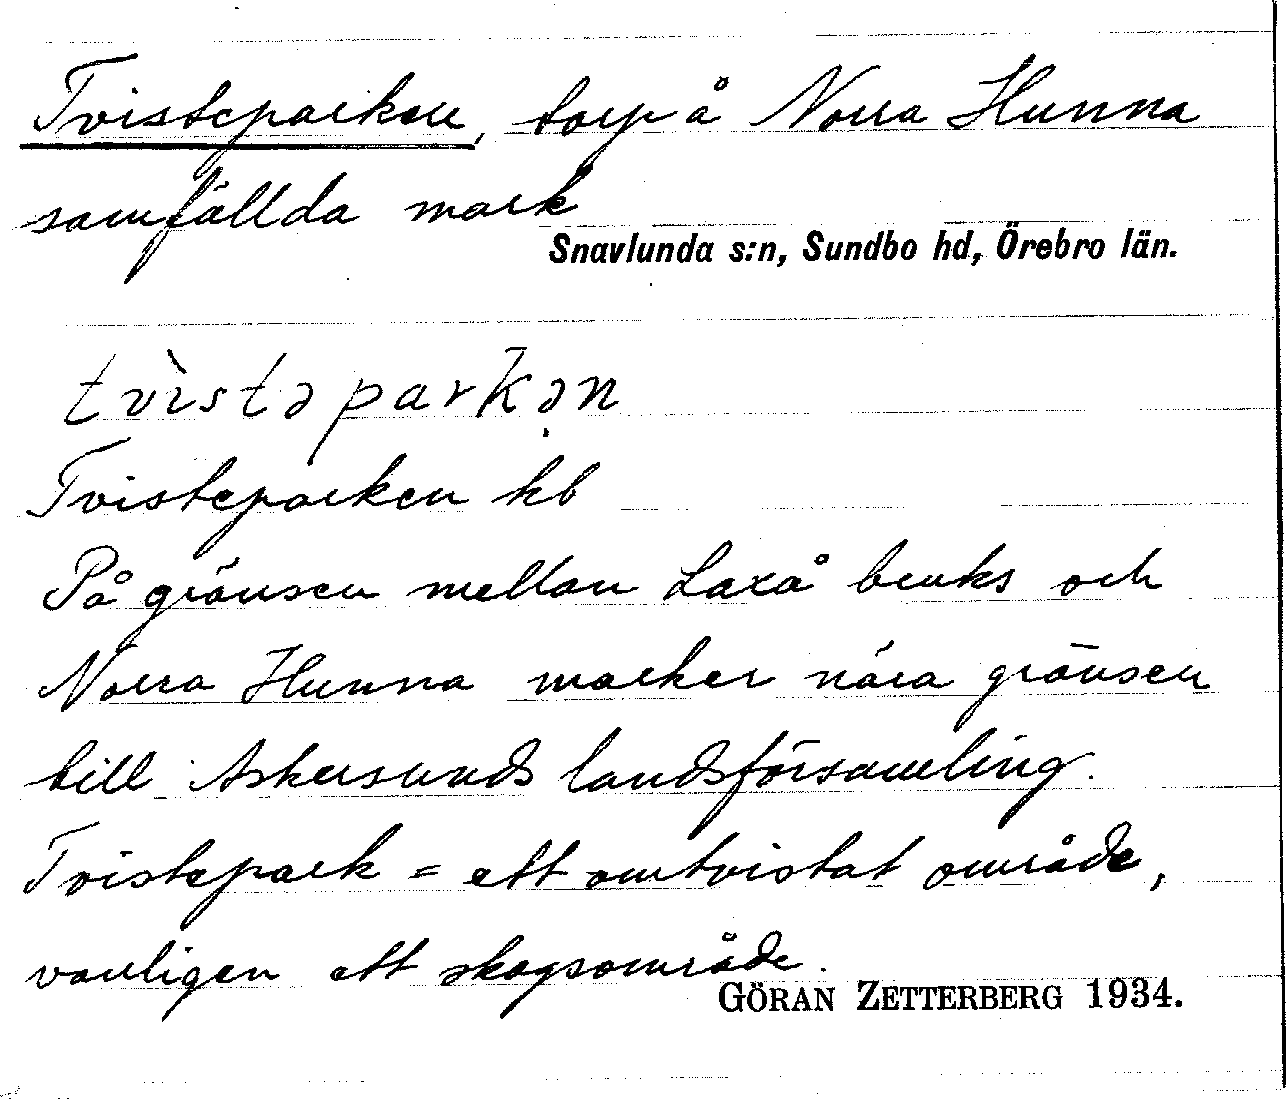 Tvisteparken, torp å Norra Hunna
samfällda mark
Snavlunda s:n, Sundbo hd, Örebro län.
tvìstəparkən
Tvisteparken kb
På gränsen mellan Laxå bruks och
Norra Hunna marker nära gränsen
till Askersunds landsförsamling.
Tvistepark = ett omtvistat område,
vanligen ett skogsområde.
GÖRAN ZETTERBERG 1934.